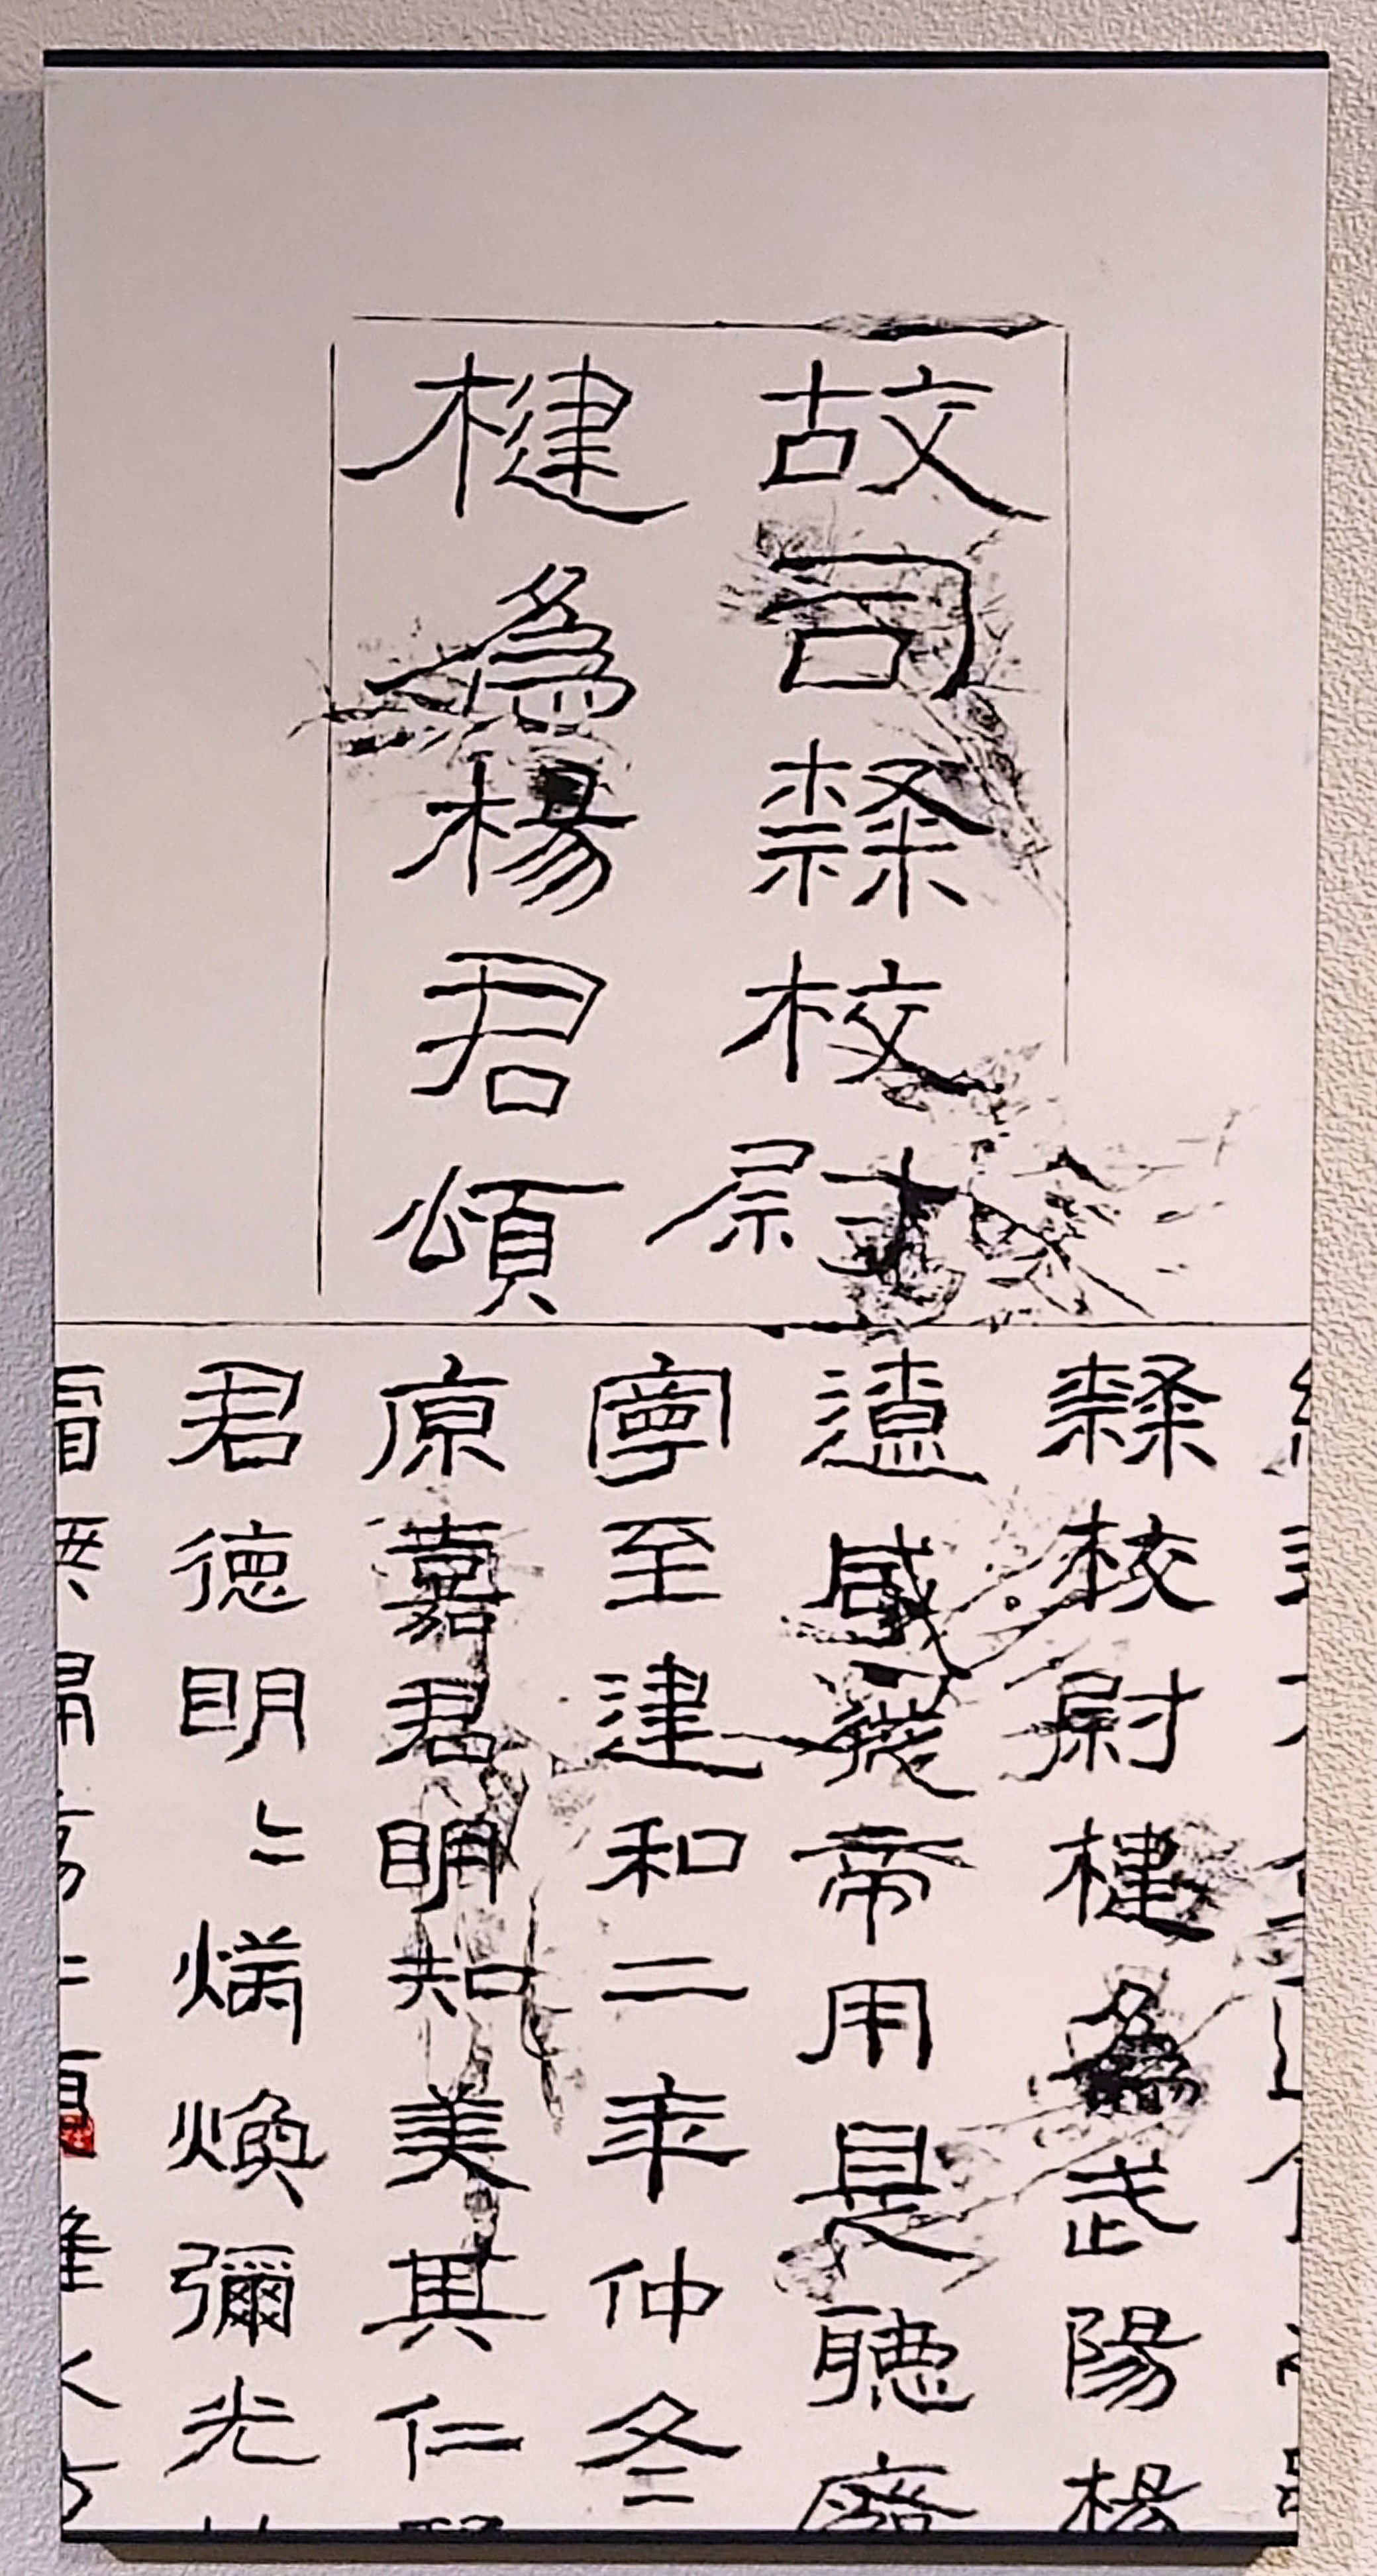 故司隸校尉
楗為楊君頌
隸校尉楗為武陽楊
遼咸從帝用是聽廢
寧至建和二年仲冬
原嘉君明知美其仁
君德明〻炳煥彌光